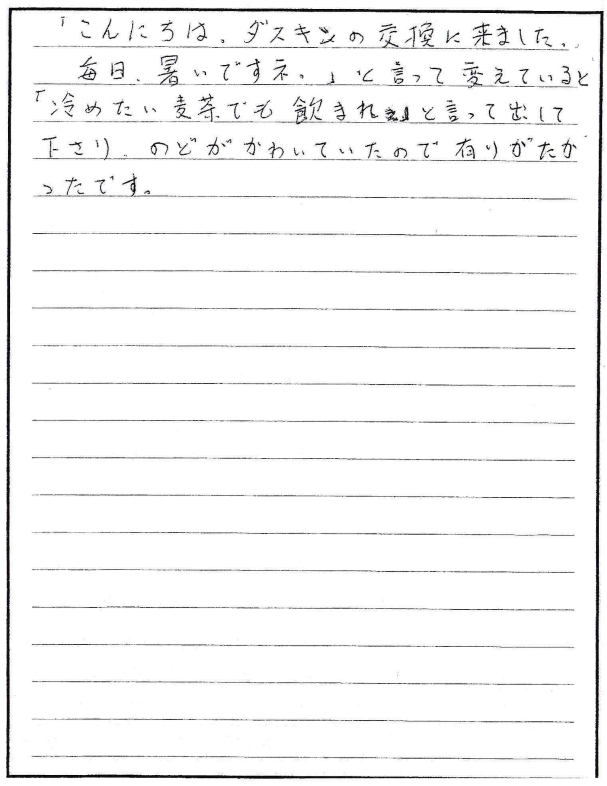 「こんにちは、ダスキンの交換に来ました。
毎日、暑いですネ。」と言って変えていると
「冷めたい麦茶でも飲まれ」と言って出して
下さり、のどがかわいていたので有りがたか
ったです。